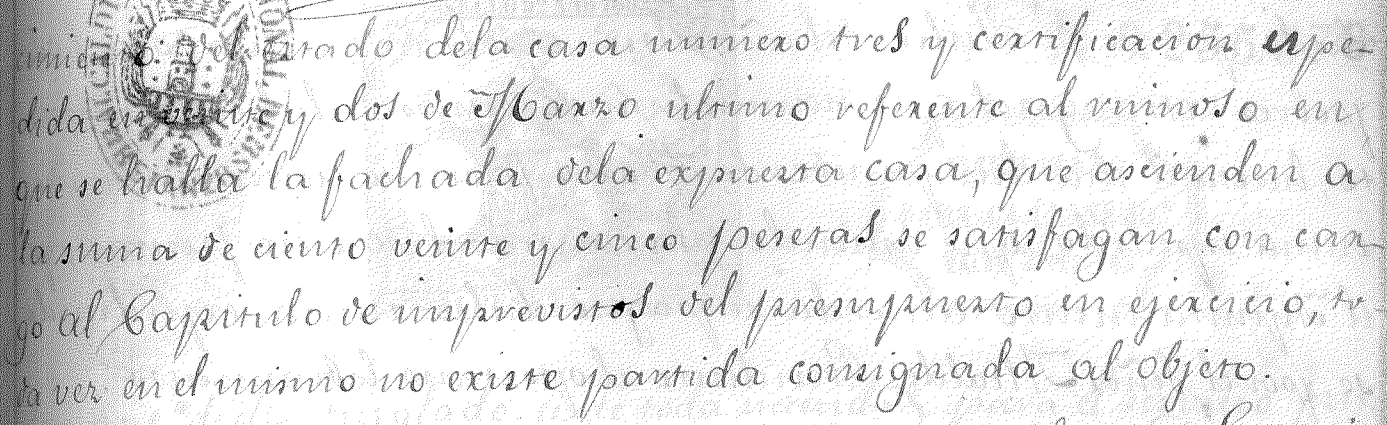 cimiento del estado dela casa numero tres y certificacion espe-
dida en veinte y dos de Marzo ultimo referente al ruinoso en
que se halla la fachada dela expuesta casa, que ascienden a
la suma de ciento veinte y cinco pesetas se satisfagan con car-
go al Capitulo de imprevistos del presupuesto en ejercicio, to-
da vez en el mismo no existe partida consignada al objeto.